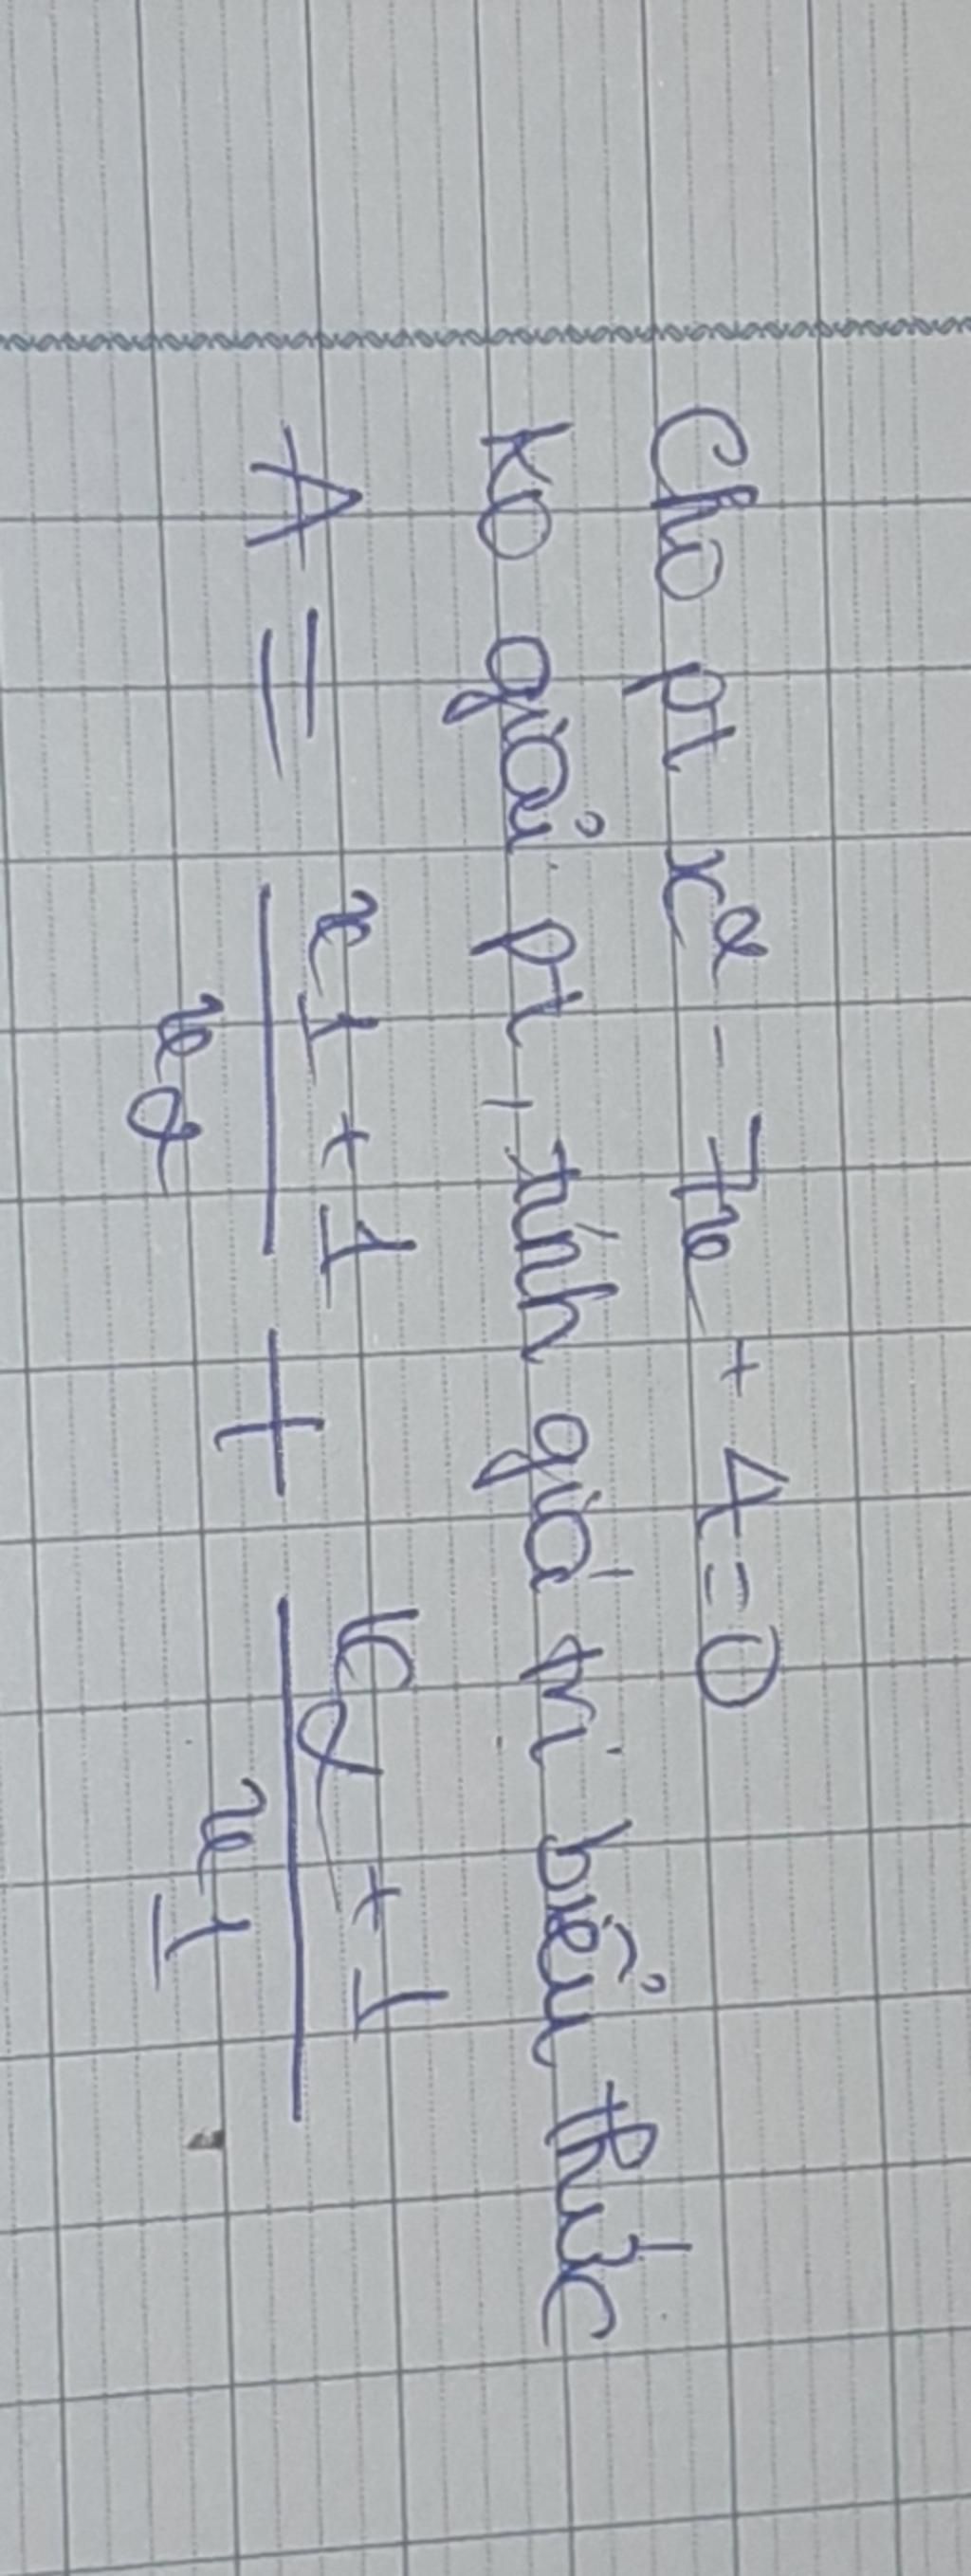 Cho pt x² - 7x + 4 = 0
Ko giải pt, tính giá trị biểu thức
A = x1 + 1 / x2 + x2 + 1 / x1